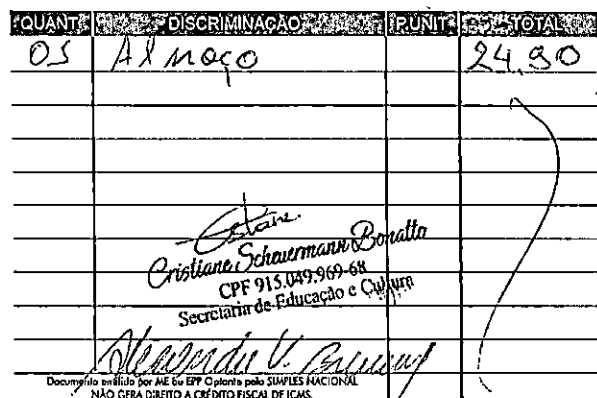 QUANT. DISCRIMINAÇÃO P.UNIT. TOTAL
01 Almoço 24,90
Cristiane Scheuermann Bonatto
CPF 915.049.969-68
Secretaria de Educação e Cultura
Documento emitido por ME ou EPP Optante pelo SIMPLES NACIONAL
NÃO GERA DIREITO A CRÉDITO FISCAL DE ICMS.